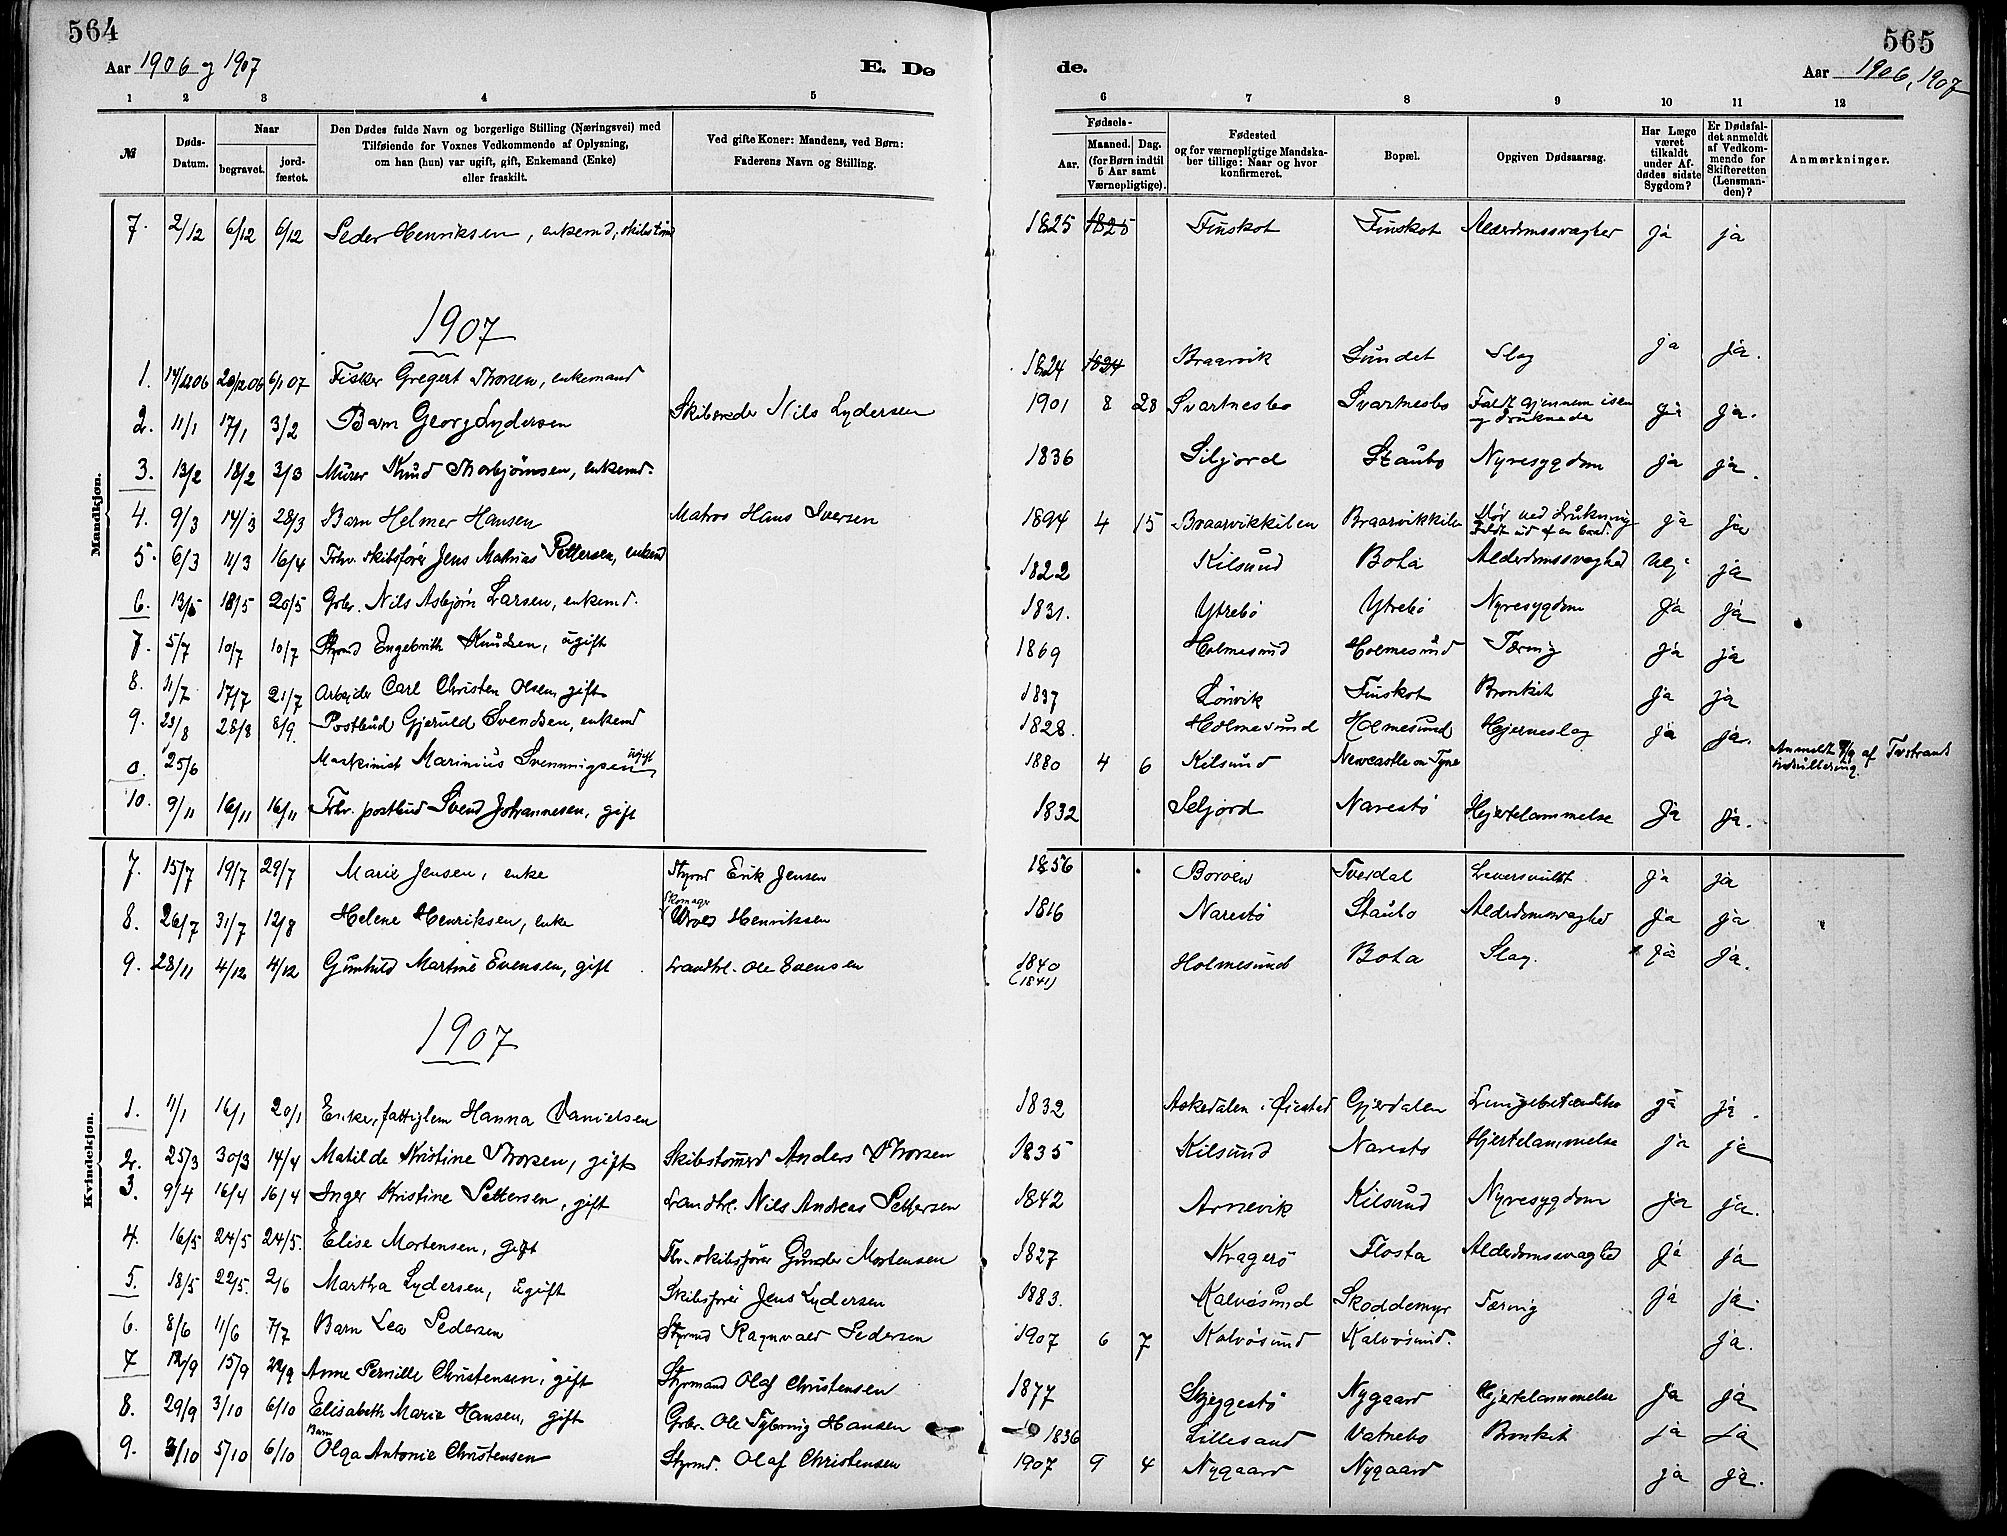 564
565
Aar 1906 og 1907
E. Dø
de.
Aar 1906, 1907
1 2 3 4 5 6 7 8 9 10 11 12
№
Døds-Datum.
Naar
begravet.
jord-fæstet.
Den Dødes fulde Navn og borgerlige Stilling (Næringsvei) med
Tilføiende for Voxnes Vedkommende af Oplysning,
om han (hun) var ugift, gift, Enkemand (Enke)
eller fraskilt.
Ved gifte Koner: Mandens, ved Børn:
Faderens Navn og Stilling.
Fødsels-
Aar.
Maaned. Dag.
(for Børn indtil
5 Aar samt
Værnepligtige).
Fødested
og for værnepligtige Mandska-
ber tillige: Naar og hvor
konfirmeret.
Bopæl.
Opgiven Dødsaarsag.
Har Læge
været
tilkaldt
under Af-
dødes sidste
Sygdom?
Er Dødsfal-
det anmeldt
af Vedkom-
mende for
Skifteretten
(Lensman-
den)?
Anmærkninger.
Mandkjøn.
7. 2/12 6/12 6/12 Peder Henriksen, enkemd, skibstømd 1825 1825 Finskot Finskot Alderdomssvaghed ja ja
1907
1. 14/12 06 20/12 06 6/1 07 Fisker Gregert Thorsen, enkemand 1824 1824 Braarvik Sundet Slag ja ja.
2. 11/1 17/1 3/2 Barn Georg Lydersen Skibsreder Nils Lydersen 1901 8 28 Svartnesbo Svartnesbo Faldt gjennem isen
og druknede ja ja.
3. 13/2 18/2 3/3 Murer Knud Thorbjörnsen, enkemd. 1836 Siljord Staubo Nyresygdom ja ja.
4. 9/3 14/3 28/3 Barn Helmer Hansen Matros Hans Iversen 1894 4 15 Braarvikkilen Braarvikkilen Död ved Drukning
Faldt ud af en baad. ja ja
5. 6/3 11/3 16/4 Fhv. skibsförer Jens Mathias Pettersen, enkemd 1822 Kilsund Bota Alderdomssvaghed nej ja
6. 13/5 18/5 20/5 Gbr. Nils Asbjörn Larsen, enkemd. 1831. Ytrebö Ytrebö Nyresygdom ja ja
7. 5/7 10/7 10/7 Styrmd Engebrith Knudsen, ugift 1869 Holmesund Holmesund Tæring ja ja
8. 11/7 17/7 21/7 Arbeider Carl Christen Olsen, gift 1837 Lönvik Finskot Bronkit ja ja
9. 23/8 28/8 8/9. Postbud Gjeruld Svendsen, enkemd 1828. Holmesund Holmesund Hjerneslag ja ja.
0. 25/6 Maskinist Marinius Svenningsen ugift 1880 4 6 Kilsund Newcastle on Tyne Anmeldt af Tvedestrands
indrullering.
10. 9/11 16/11 16/11 Fhv. postbud Svend Johannesen, gift 1832 Seljord Narestö Hjertelammelse ja ja.
Kvindekjøn.
7. 15/7 19/7 29/7 Marie Jensen, enke Styrmd Erik Jensen 1856 Boröen Tverdal Leversvulst ja ja
8. 26/7 31/7 12/8 Helene Henriksen, enke Skomager Henriksen 1816 Narestö Staubo Alderdomssvaghed ja ja
9. 28/11 4/12 4/12 Gunhild Martine Evensen, gift Landhl. Ole Evensen 1840
(1841) Holmesund Bota Slag. ja ja.
1907
1. 11/1 16/1 20/1 Enke, fattiglem Hanna Danielsen 1832 Askedalen i Øiestad Gjerdalen Lungebetændelse ja ja.
2. 25/3 30/3 14/4 Matilde Kristine Thorsen, gift Skibstömmd Anders Thorsen 1835 Kilsund Narestö Hjertelammelse ja ja
3. 9/4 16/4 16/4 Inger Kristine Pettersen, gift Landhl. Nils Andreas Pettersen 1842 Arnevik Kilsund Nyresygdom ja ja.
4. 16/5 24/5 24/5. Elise Mortensen, gift Fhv. skibsförer Gunder Mortensen 1827 Kragerö Flosta Alderdomssvaghed ja ja
5. 18/5 22/5. 2/6 Martha Lydersen, ugift Skibsförer Jens Lydersen 1883. Kalvösund Skoddemyr Tæring ja ja.
6. 8/6 11/6 7/7 Barn Lea Pedersen Styrmd Ragnvald Pedersen 1907 6 7 Kalvösund Kalvösund. ja.
7 12/9 15/9 22/9 Anne Pernille Christensen, gift Styrmand Olaf Christensen 1877 Skjeggestö Nygaard Hjertelammelse ja ja
8. 29/9 3/10 6/10 Elisabeth Marie Hansen, gift Gbr. Ole Hansen 1836 Lillesand Vatnebo Bronkit ja ja
9. 3/10 5/10 6/10 Barn Olga Antonie Christensen Styrmd. Olaf Christensen 1907 9 4 Nygaard Nygaard ja ja.